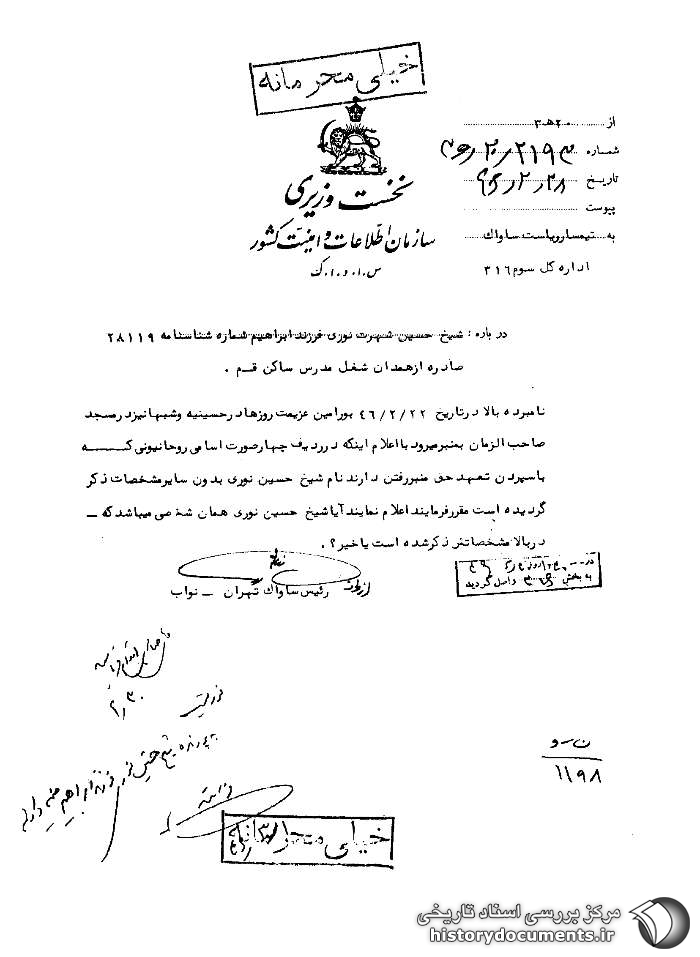 خیلی محرمانه
از ۲۰ھ۳
شماره ۲۰/۲۱۹۳
تاریخ ۴۶/۲/۲۸
پیوست
به تیمسار ریاست ساواک
اداره کل سوم ۳۱۶
نخست وزیری
سازمان اطلاعات و امنیت کشور
س.ا.و.ا.ک
درباره : شیخ حسین شهرت نوری فرزند ابراهیم شماره شناسنامه ۲۸۱۱۹
صادره از همدان شغل مدرس ساکن قم .
نامبرده بالا در تاریخ ۴۶/۲/۲۲ بورامین عزیمت روزها در حسینیه و شبها نیز در مسجد
صاحب الزمان بمنبر میرود با اعلام اینکه در ردیف چهار صورت اسامی روحانیونی که
با سپردن تعهد حق منبر رفتن دارند نام شیخ حسین نوری بدون سایر مشخصات ذکر
گردیده است مقرر فرمایند اعلام نمایند آیا شیخ حسین نوری همان شخصی میباشد که –
در بالا مشخصاتش ذکر شده است یا خیر؟ .
رئیس ساواک تهران – نواب
به بخش ۳۱۶ واصل گردید
۲/۳۰
پرونده شیخ حسین نوری فرزند ابراهیم ضمیمه دارد
ن–و
۱۱۹۸
خیلی محرمانه
مرکز بررسی اسناد تاریخی
historydocuments.ir